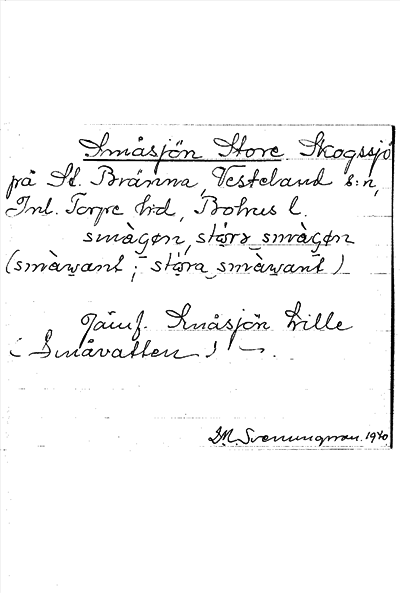 Småsjön Store. Skogssjö
på St. Bränna, Vesteland s:n,
Inl. Torpe hd, Bohus l.
småɡøn, störə småɡøn
(småwant; störa småwant)
Jämf. Småsjön Lille
(Småvatten)
D.M. Svenningsson. 1940.